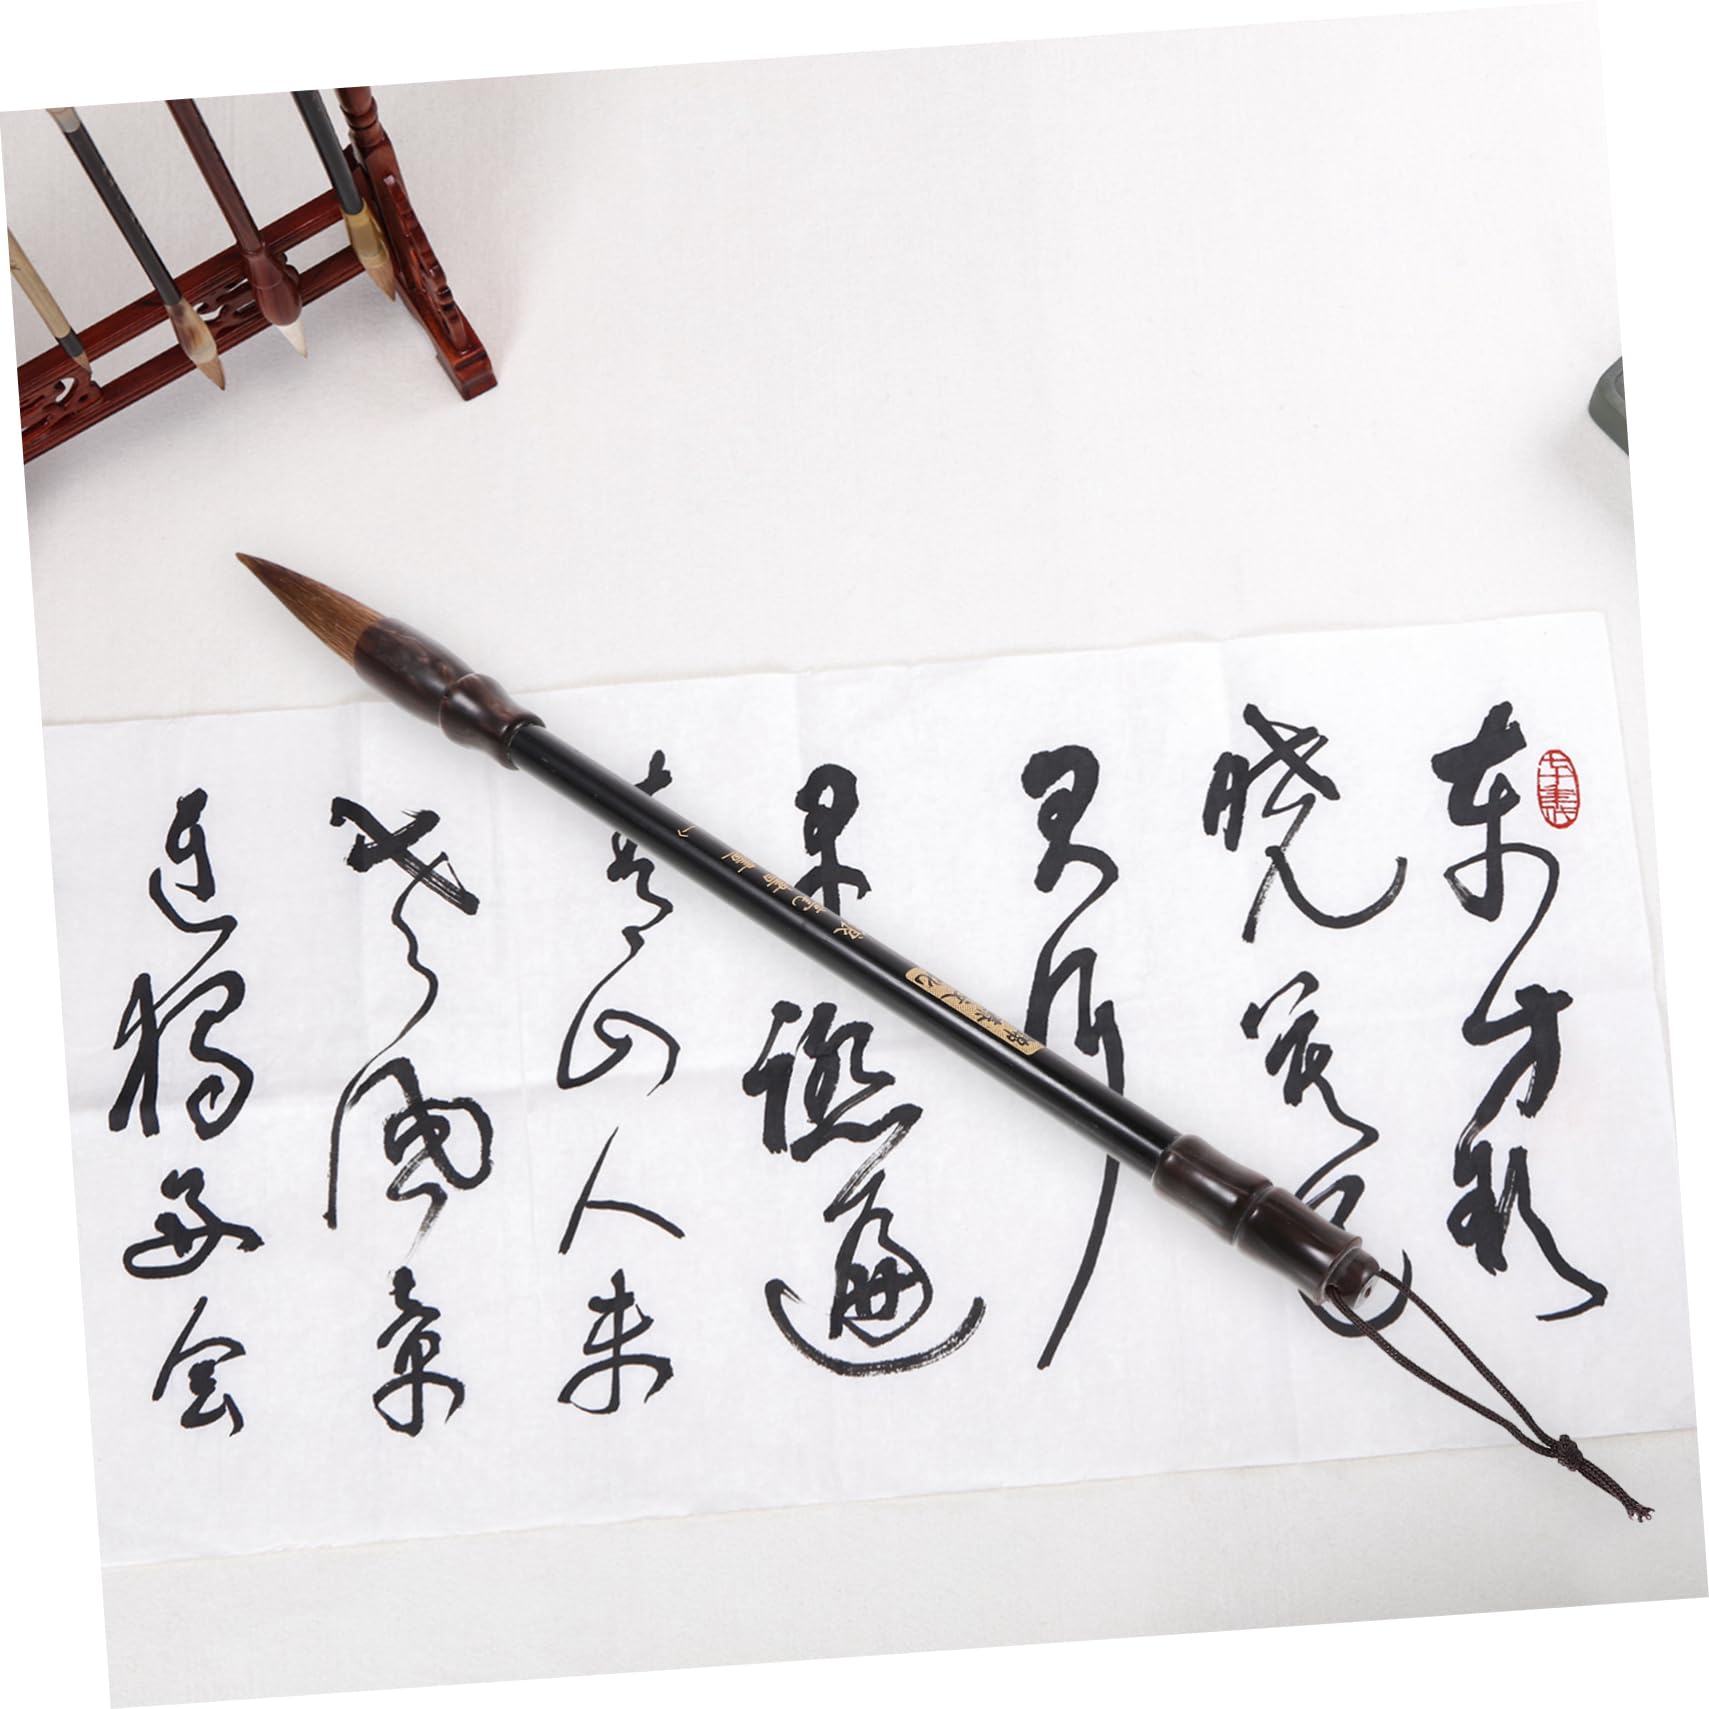 东方欲
晓莫道
君行
早踏遍
青山人未
老风景
独好会